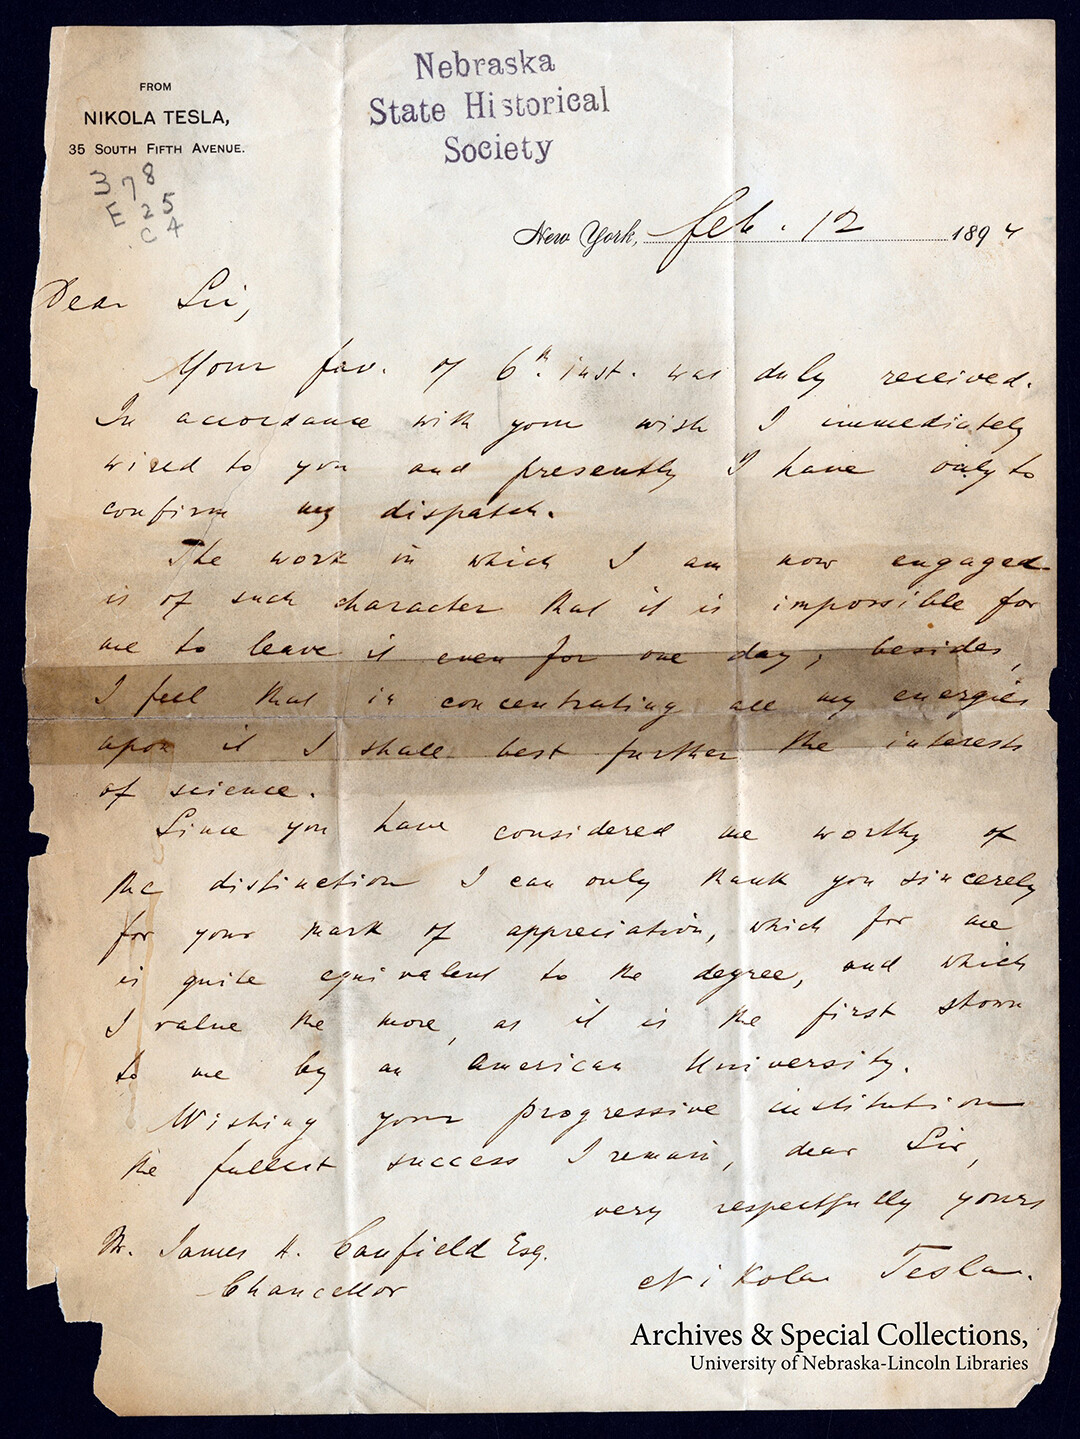 FROM
NIKOLA TESLA,
35 SOUTH FIFTH AVENUE.
378
E 25
C 4
Nebraska
State Historical
Society
New York, Feb. 12 1894
Dear Sir,
Your fav. of 6th. inst. was duly received.
In accordance with your wish I immediately
wired to you and presently I have only to
confirm my dispatch.
The work in which I am now engaged
is of such character that it is impossible for
me to leave it even for one day; besides,
I feel that in concentrating all my energies
upon it I shall best further the interests
of science.
Since you have considered me worthy of
the distinction I can only thank you sincerely
for your mark of appreciation, which for me
is quite equivalent to the degree, and which
I value the more, as it is the first shown
to me by an American University.
Wishing your progressive institution
the fullest success I remain, dear Sir,
very respectfully yours
Nikola Tesla.
James H. Canfield Esq.
Chancellor
Archives & Special Collections,
University of Nebraska-Lincoln Libraries